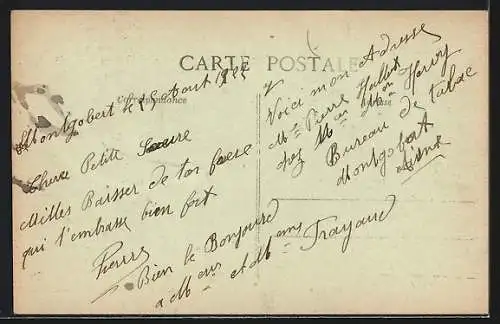 CARTE POSTALE
Correspondance
Montgobert le 15 Aout
Chere Petite Soeure
Milles Baisser de ton frere
qui t'embrasse bien fort
Pierre
Bien le Bonjour
a Mr et Mme
Voici mon Adresse
Mr Pierre Hallet
chez Mr Mme Hervy
Bureau de tabac
Montgobert
Aisne